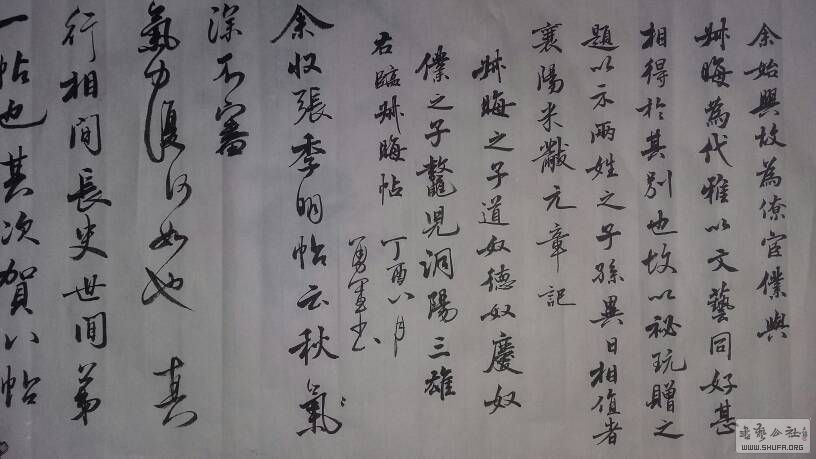 余始興故為僚宦僕與
叔晦為代雅以文藝同好甚
相得於其別也故以祕玩贈之
題以示兩姓之子孫異日相值者
襄陽米黻元章記
叔晦之子道奴德奴慶奴
僕之子鼇兒洞陽三雄
右臨叔晦帖 丁酉八月
余收張季明帖云秋氣
深不審
氣力復何如也 真
行相間長史世間第
一帖也其次賀八帖
书艺公社
WWW.SHUFA.ORG